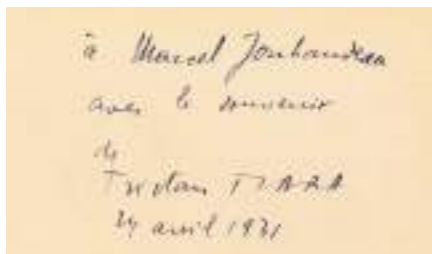 à Marcel Jouhandeau
avec le souvenir
de
Tristan TZARA
24 avril 1931